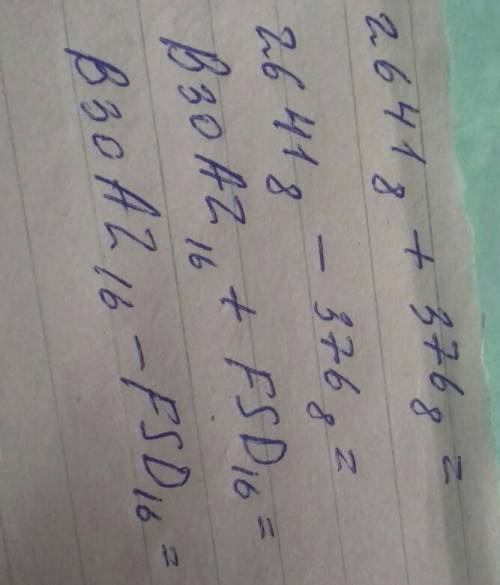 2641₈ + 376₈ =
2641₈ - 376₈ =
B30A2₁₆ + F5D₁₆ =
B30A2₁₆ - F5D₁₆ =